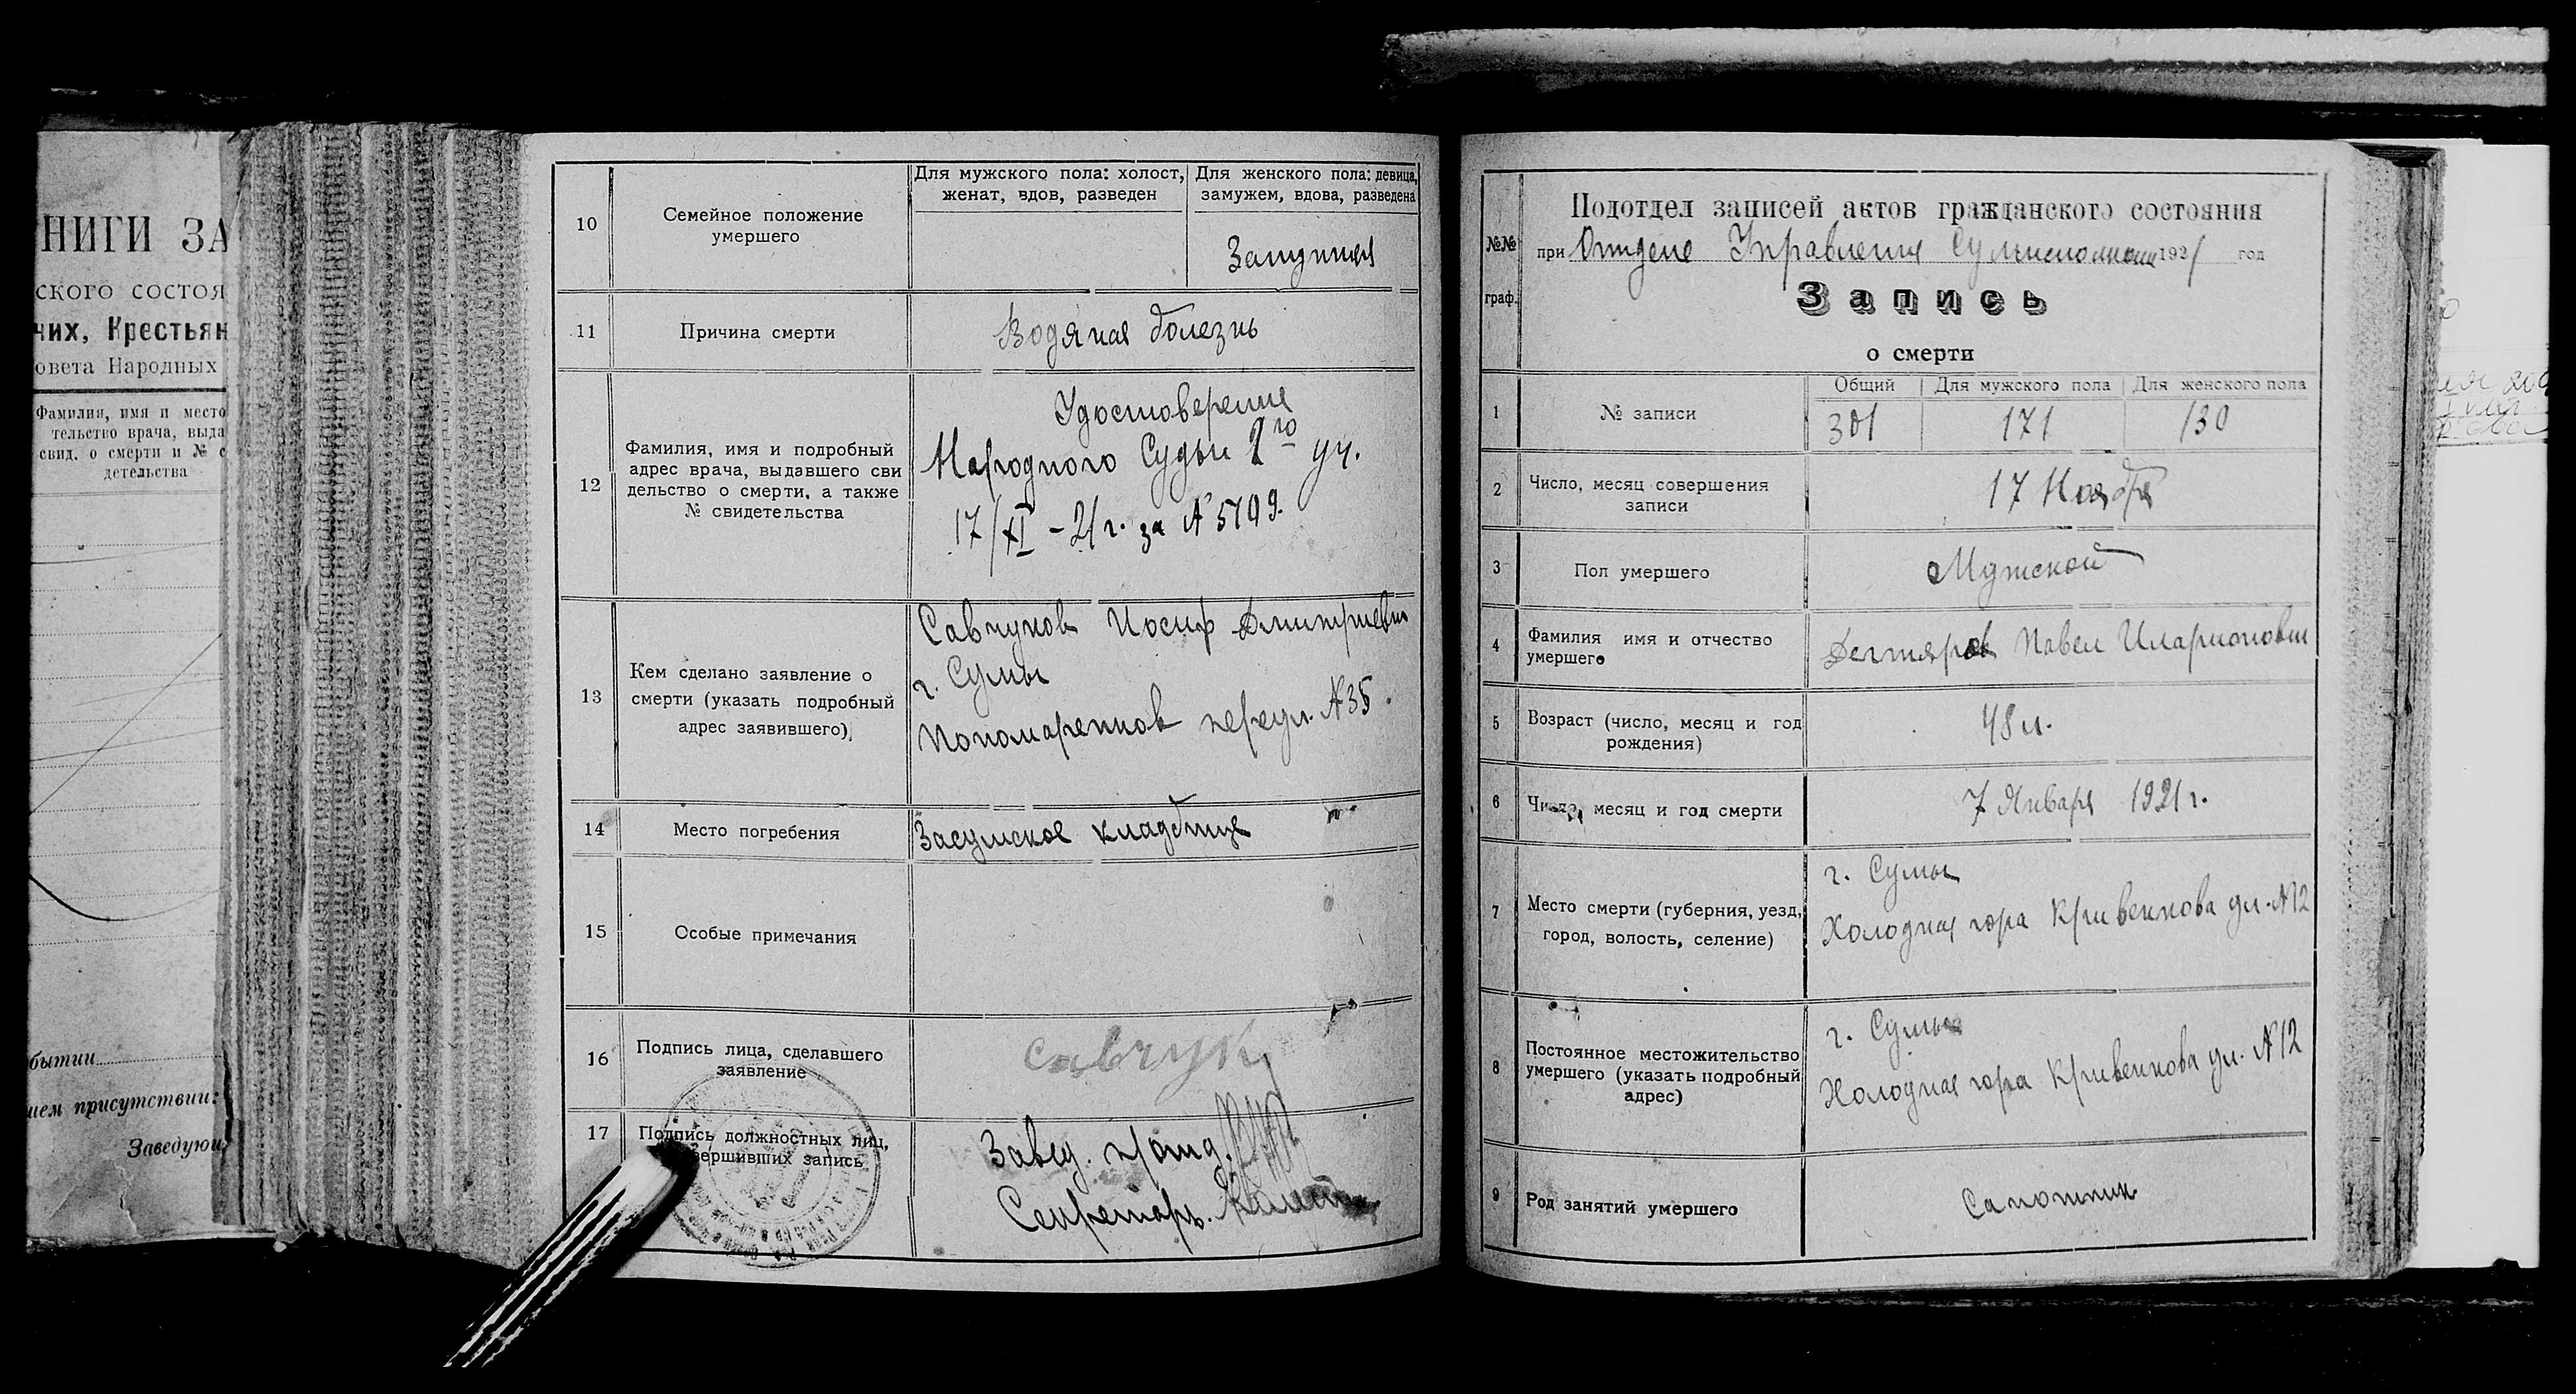 НИГИ ЗА
ского состоя
чих, Крестьян
овета Народных
Фамилия, имя и место
тельство врача, выда
свид. о смерти и № с
детельства
бытии
ием присутствии:
Заведую
10
Семейное положение
умершего
Для мужского пола: холост,
женат, вдов, разведен
Для женского пола: девица,
замужем, вдова, разведена
Замужняя
11
Причина смерти
Водяная болезнь
12
Фамилия, имя и подробный
адрес врача, выдавшего сви
дельство о смерти, а также
№ свидетельства
Удостоверение
Народного Судьи 2го уч.
17/XI - 21 г. за № 5799.
13
Кем сделано заявление о
смерти (указать подробный
адрес заявившего)
Савчуков Иосиф Дмитриевич
г. Сумы
Пономаренков переул. № 35.
14
Место погребения
Засумское кладбище
15
Особые примечания
16
Подпись лица, сделавшего
заявление
Савчук
17
Подпись должностных лиц,
вершивших запись
Завед. п/отд.
Секретарь.
№№
граф.
Подотдел записей актов гражданского состояния
при Отделе Управления Сумисполкома 1921 год
Запись
о смерти
1
№ записи
Общий
Для мужского пола
Для женского пола
301
171
130
2
Число, месяц совершения
записи
17 Ноября
3
Пол умершего
Мужской
4
Фамилия имя и отчество
умершего
Дегтярев Павел Иларионович
5
Возраст (число, месяц и год
рождения)
48 л.
6
Число, месяц и год смерти
7 Января 1921 г.
7
Место смерти (губерния, уезд,
город, волость, селение)
г. Сумы
Холодная гора Кривенкова ул. № 12
8
Постоянное местожительство
умершего (указать подробный
адрес)
г. Сумы
Холодная гора Кривенкова ул. № 12
9
Род занятий умершего
Сапожник